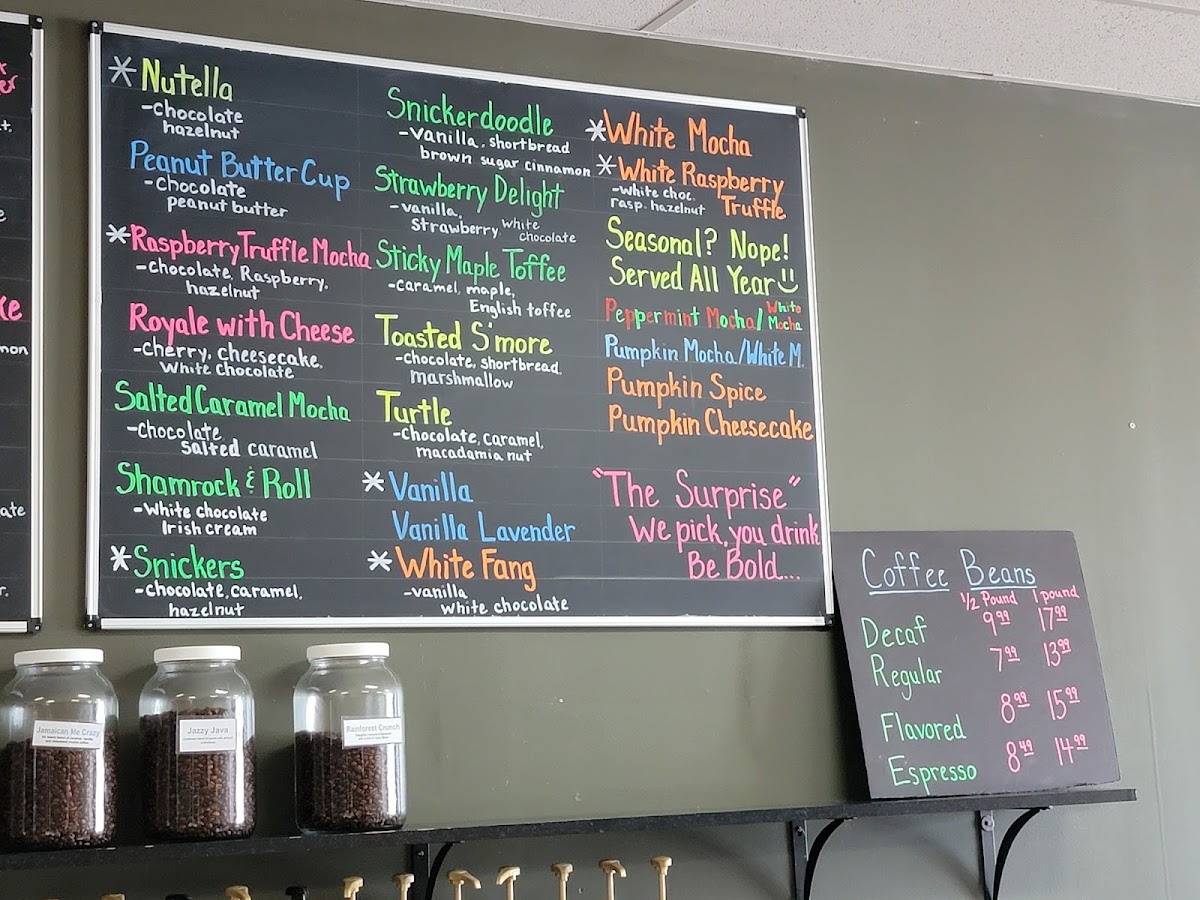 * Nutella
-chocolate
hazelnut
Peanut Butter Cup
-chocolate
peanut butter
* Raspberry Truffle Mocha
-chocolate, Raspberry,
hazelnut
Royale with Cheese
-cherry, cheesecake,
white chocolate
Salted Caramel Mocha
-chocolate
salted caramel
Shamrock & Roll
-White chocolate
Irish cream
* Snickers
-chocolate, caramel,
hazelnut
Snickerdoodle
-vanilla, shortbread
brown sugar cinnamon
Strawberry Delight
-vanilla,
strawberry, white
chocolate
Sticky Maple Toffee
-caramel, maple,
English toffee
Toasted S'more
-chocolate, shortbread,
marshmallow
Turtle
-chocolate, caramel,
macadamia nut
* Vanilla
Vanilla Lavender
* White Fang
-vanilla
white chocolate
* White Mocha
* White Raspberry
Truffle
-white choc.
rasp. hazelnut
Seasonal? Nope!
Served All Year
Peppermint Mocha/ White
Mocha
Pumpkin Mocha/White M.
Pumpkin Spice
Pumpkin Cheesecake
"The Surprise"
We pick, you drink
Be Bold...
Coffee Beans
1/2 Pound 1 pound
Decaf 9.99 17.99
Regular 7.99 13.99
Flavored 8.99 15.99
Espresso 8.49 14.99
Jamaican Me Crazy
Jazzy Java
Rainforest Crunch